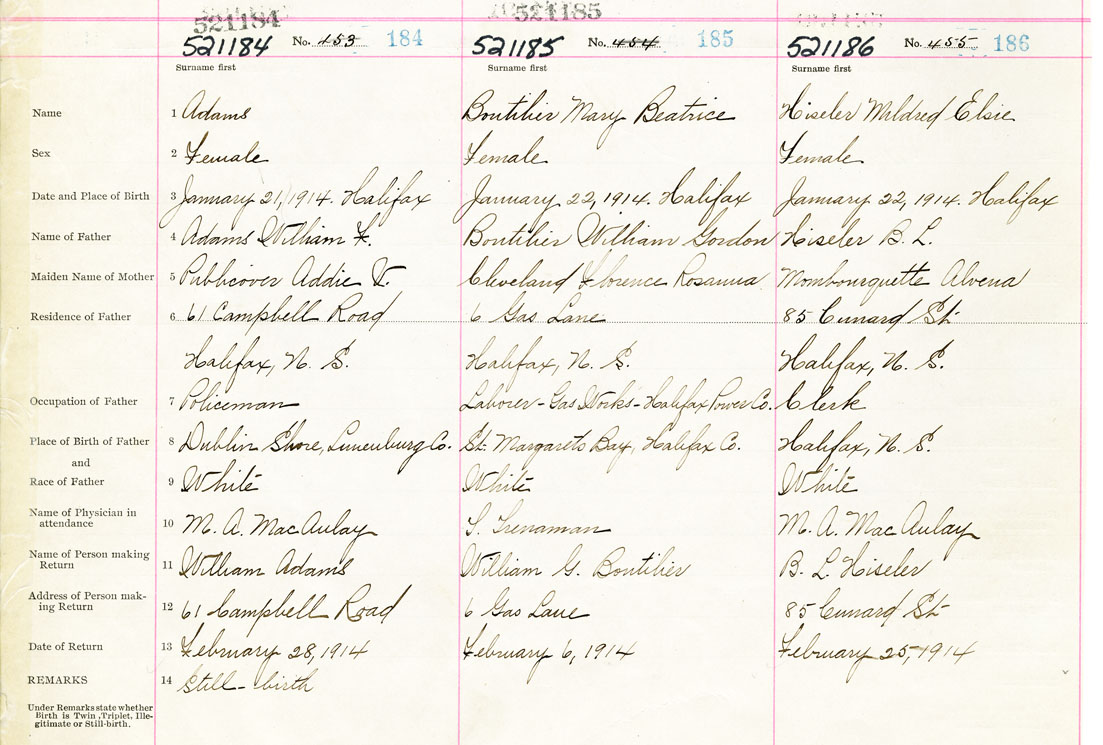 521184 521185
521184 No. 453 184 521185 No. 454 185 521186 No. 455 186
Surname first Surname first Surname first
Name 1 Adams Boutilier Mary Beatrice Hiseler Mildred Elsie
Sex 2 Female Female Female
Date and Place of Birth 3 January 21, 1914. Halifax January 22, 1914. Halifax January 22, 1914. Halifax
Name of Father 4 Adams William F. Boutilier William Gordon Hiseler B. L.
Maiden Name of Mother 5 Publicover Addie V. Cleveland Florence Rosanna Mombourquette Alvena
Residence of Father 6 61 Campbell Road 6 Gas Lane 85 Cunard St.
Halifax, N. S. Halifax, N. S. Halifax, N. S.
Occupation of Father 7 Policeman Laborer - Gas Works - Halifax Power Co. Clerk
Place of Birth of Father 8 Dublin Shore, Lunenburg Co. St. Margarets Bay, Halifax Co. Halifax, N. S.
and
Race of Father 9 White White White
Name of Physician in
attendance 10 M. A. MacAulay Trenaman M. A. MacAulay
Name of Person making
Return 11 William Adams William G. Boutilier B. L. Hiseler
Address of Person mak-
ing Return 12 61 Campbell Road 6 Gas Lane 85 Cunard St.
Date of Return 13 February 28, 1914 February 6, 1914 February 25, 1914
REMARKS 14 Still-birth
Under Remarks state whether
Birth is Twin, Triplet, Ille-
gitimate or Still-birth.